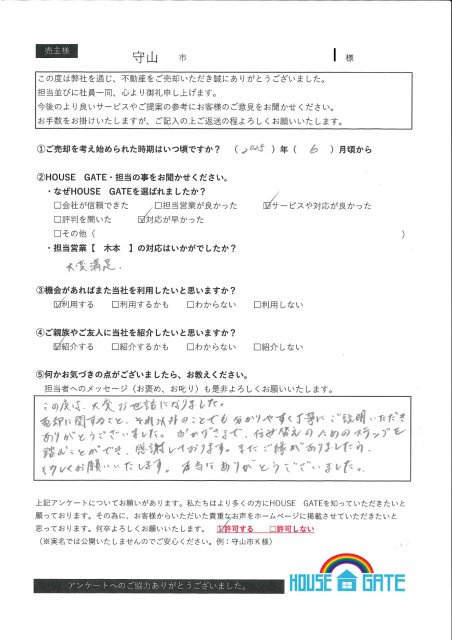 売主様
守山 市 様
この度は弊社を通じ、不動産をご売却いただき誠にありがとうございました。
担当並びに社員一同、心より御礼申し上げます。
今後のより良いサービスやご提案の参考にお客様のご意見をお聞かせください。
お手数をお掛けいたしますが、ご記入の上ご返送の程よろしくお願いいたします。
①ご売却を考え始められた時期はいつ頃ですか？ （2025）年（ 6 ）月頃から
②HOUSE GATE・担当の事をお聞かせください。
・なぜHOUSE GATEを選ばれましたか？
□会社が信頼できた □担当営業が良かった ☑サービスや対応が良かった
□評判を聞いた ☑対応が早かった
□その他（ ）
・担当営業【 木本 】の対応はいかがでしたか？
大変満足.
③機会があればまた当社を利用したいと思いますか？
☑利用する □利用するかも □わからない □利用しない
④ご親族やご友人に当社を紹介したいと思いますか？
☑紹介する □紹介するかも □わからない □紹介しない
⑤何かお気づきの点がございましたら、お教えください。
担当者へのメッセージ（お褒め、お叱り）も是非よろしくお願いいたします。
この度は、大変お世話になりました。
売却に関すること、それ以外のことでも分かりやすく丁寧にご説明いただき
ありがとうございました。おかげさまで、住み替えのためのステップを
踏むことができ、感謝しております。またご縁がありましたら、
よろしくお願いいたします。本当にありがとうございました。
上記アンケートについてお願いがあります。私たちはより多くの方にHOUSE GATEを知っていただきたいと
願っております。その為に、お客様からいただいた貴重なお声をホームページに掲載させていただきたいと
思っております。何卒よろしくお願いいたします。 ☑許可する □許可しない
（※実名では公開いたしませんのでご安心ください。例：守山市K様）
アンケートへのご協力ありがとうございました。
HOUSE GATE